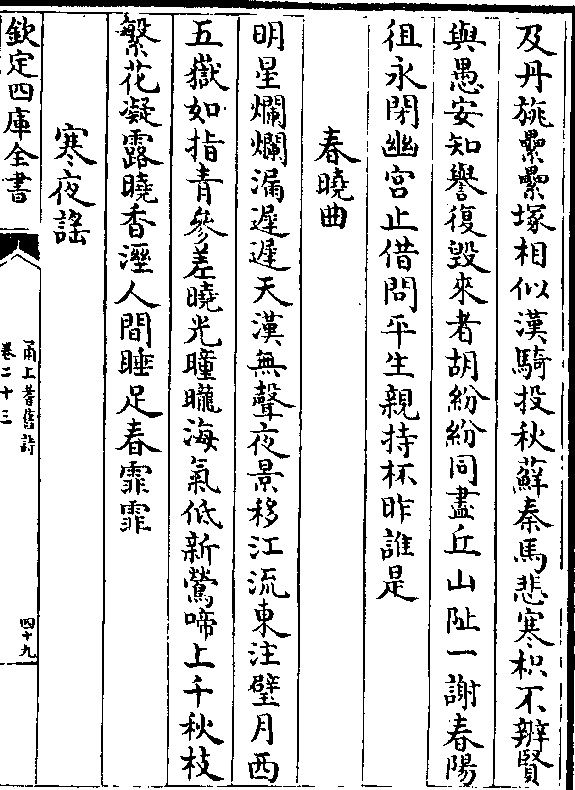 及丹旐纍纍塚相似漢騎投秋蘚秦馬悲寒枳不辨賢
與愚安知譽復毀來者胡紛紛同盡丘山阯一謝春陽
徂永閉幽宮止借問平生親持杯昨誰是
春曉曲
明星爛爛漏遲遲天漢無聲夜景移江流東注璧月西
五嶽如指青參差曉光曈曨海氣低新鶯啼上千秋枝
繁花凝露曉香溼人間睡足春霏霏
寒夜謠
欽定四庫全書
甬上耆舊詩
卷二十三
四十九